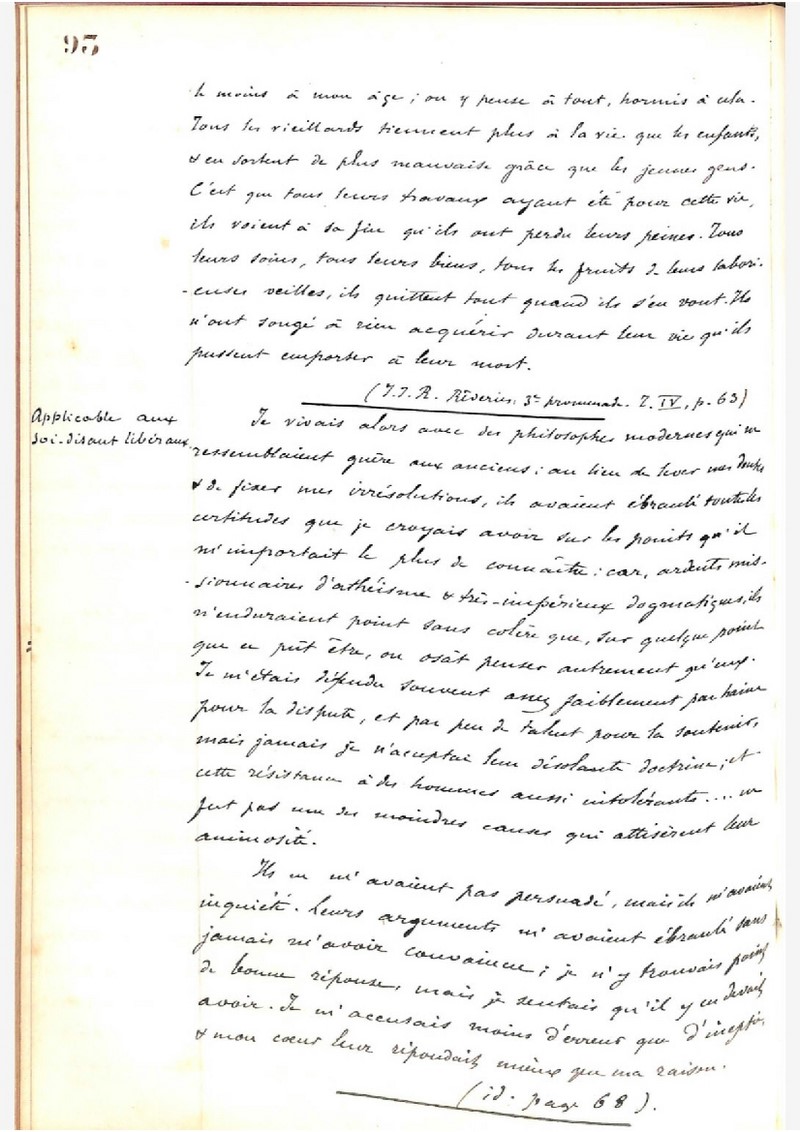 95
le moins à mon âge ; on y pense à tout, hormis à cela.
Tous les vieillards tiennent plus à la vie que les enfants,
& en sortent de plus mauvaise grâce que les jeunes gens.
C'est que tous leurs travaux ayant été pour cette vie,
ils voient à sa fin qu'ils ont perdu leurs peines. Tous
leurs soins, tous leurs biens, tous les fruits de leurs labori-
-euses veilles, ils quittent tout quand ils s'en vont. Ils
n'ont songé à rien acquérir durant leur vie qu'ils
pussent emporter à leur mort.
(J.J.R. Rêveries, 3e promenade. T. IV, p. 63)
Applicable aux
soi-disant libéraux
Je vivais alors avec des philosophes modernes qui ne
ressemblaient guère aux anciens : au lieu de lever mes doutes
& de fixer mes irrésolutions, ils avaient ébranlé toutes les
certitudes que je croyais avoir sur les points qu'il
m'importait le plus de connaître : car, ardents mis-
-sionnaires d'athéisme & très-impérieux dogmatiques, ils
n'enduraient point sans colère que, sur quelque point
que ce pût être, on osât penser autrement qu'eux.
Je m'étais défendu souvent assez faiblement par haine
pour la dispute, et par peu de talent pour la soutenir,
mais jamais je n'acceptai leur désolante doctrine ; et
cette résistance à des hommes aussi intolérants .... ne
fut pas une des moindres causes qui attisèrent leur
animosité.
Ils ne m'avaient pas persuadé, mais ils m'avaient
inquiété. Leurs arguments m'avaient ébranlé sans
jamais m'avoir convaincu ; je n'y trouvais point
de bonne réponse, mais je sentais qu'il y en devait
avoir. Je m'accusais moins d'erreur que d'ineptie,
& mon cœur leur répondait mieux que ma raison.
(id. page 68).